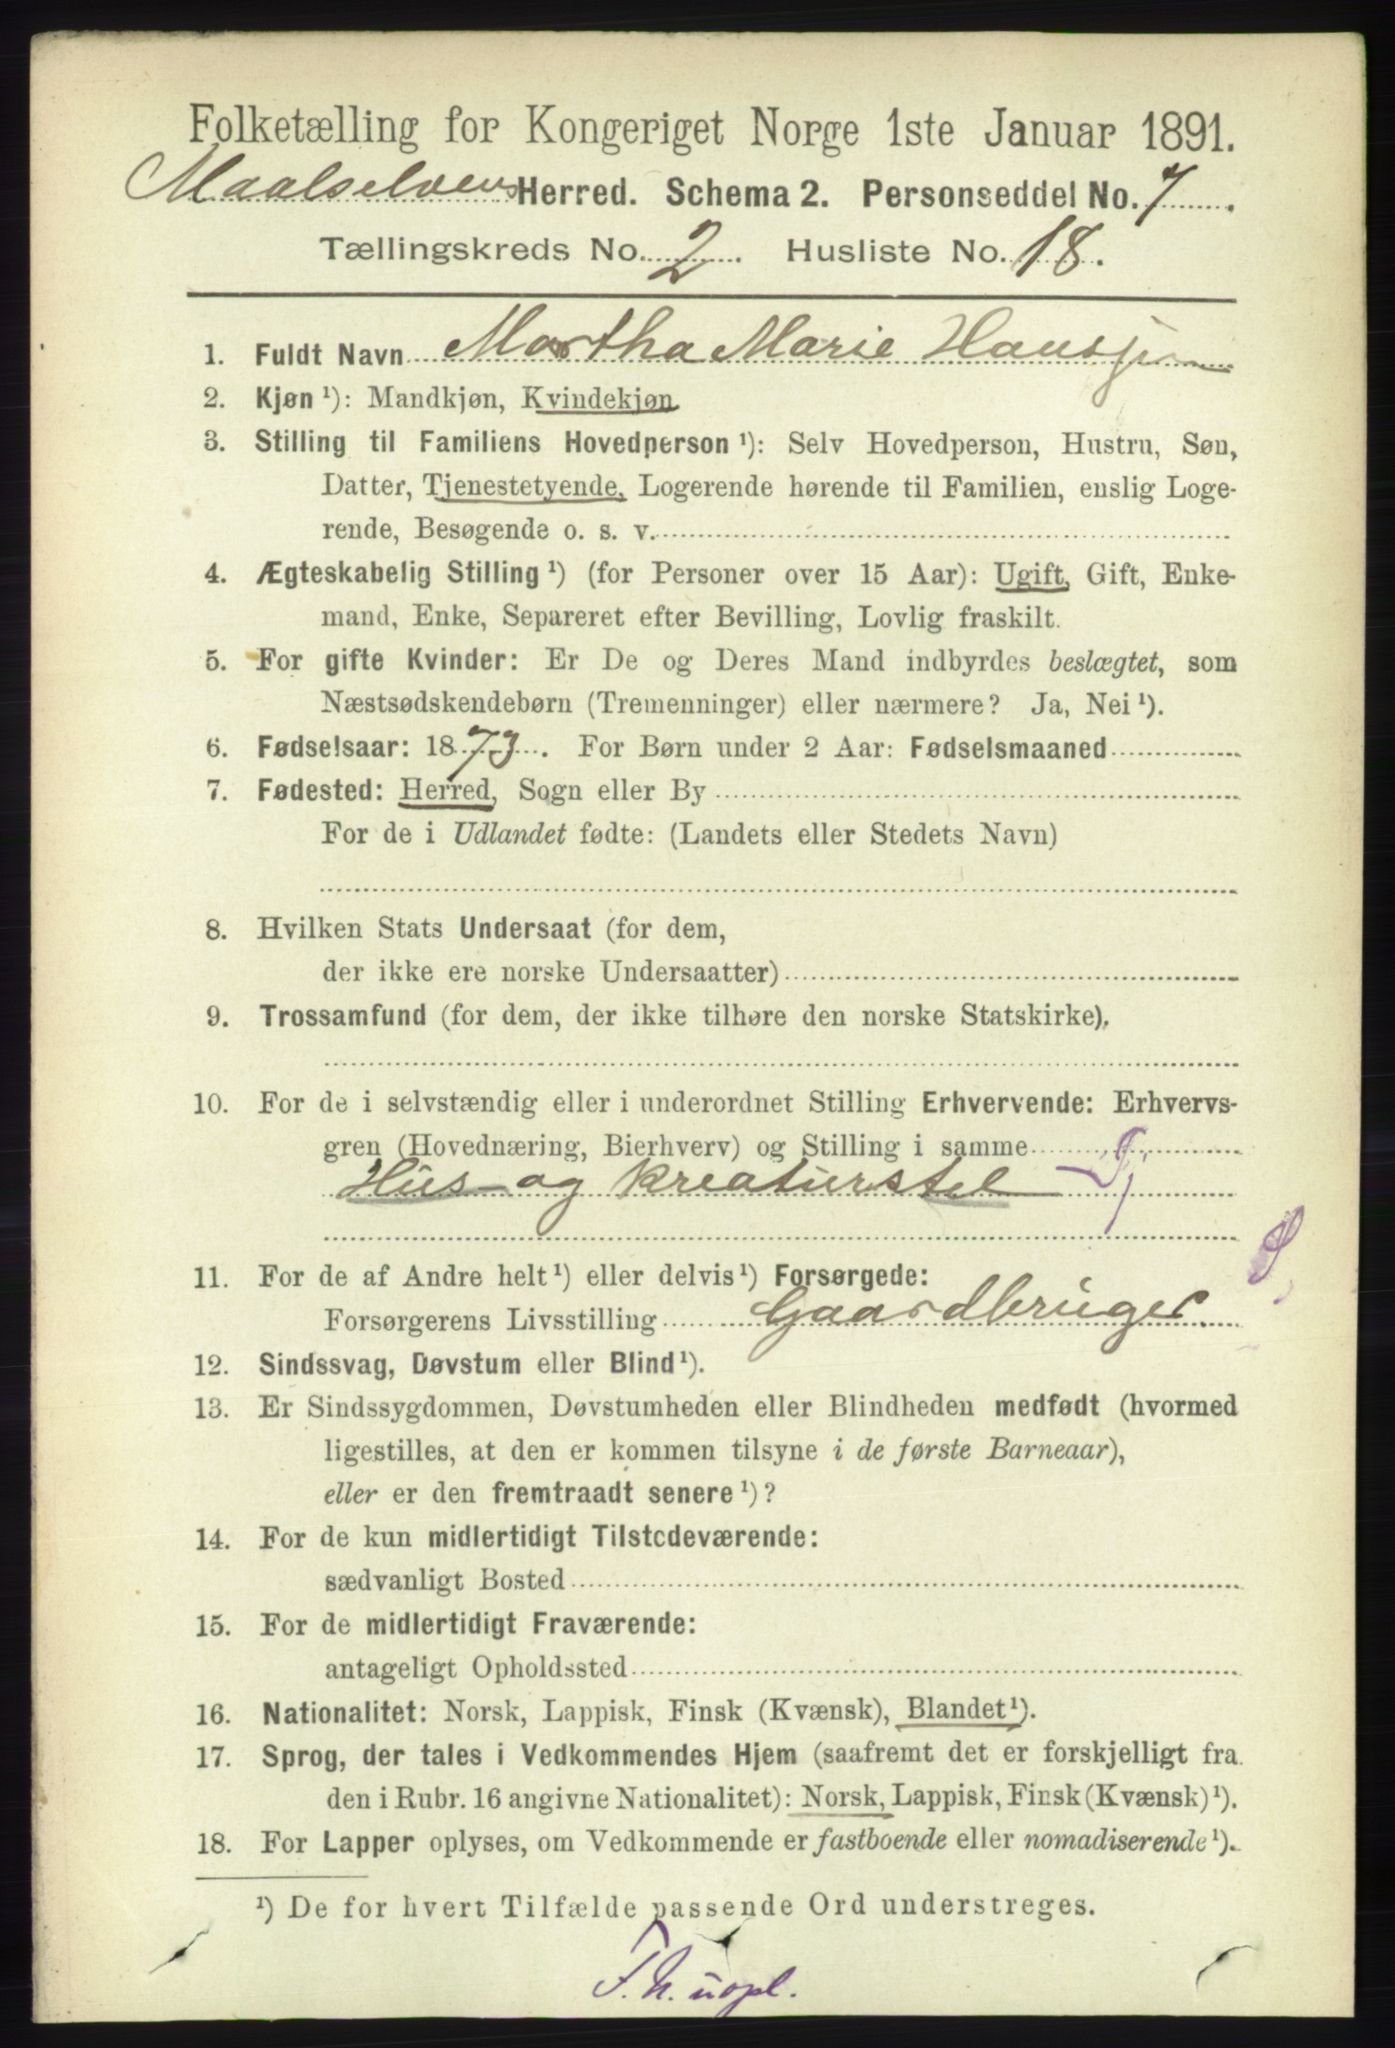 Folketælling for Kongeriget Norge 1ste Januar 1891.
Maalselvens Herred. Schema 2. Personseddel No. 7
Tællingskreds No. 2. Husliste No. 18.
1. Fuldt Navn Martha Marie Hansjen
2. Kjøn ¹): Mandkjøn, Kvindekjøn
3. Stilling til Familiens Hovedperson ¹): Selv Hovedperson, Hustru, Søn,
Datter, Tjenestetyende, Logerende hørende til Familien, enslig Loge-
rende, Besøgende o. s. v.
4. Ægteskabelig Stilling ¹) (for Personer over 15 Aar): Ugift, Gift, Enke-
mand, Enke, Separeret efter Bevilling, Lovlig fraskilt.
5. For gifte Kvinder: Er De og Deres Mand indbyrdes beslægtet, som
Næstsødskendebørn (Tremenninger) eller nærmere? Ja, Nei ¹).
6. Fødselsaar: 1873. For Børn under 2 Aar: Fødselsmaaned
7. Fødested: Herred, Sogn eller By
For de i Udlandet fødte: (Landets eller Stedets Navn)
8. Hvilken Stats Undersaat (for dem,
der ikke ere norske Undersaatter)
9. Trossamfund (for dem, der ikke tilhøre den norske Statskirke).
10. For de i selvstændig eller i underordnet Stilling Erhvervende: Erhvervs-
gren (Hovednæring, Bierhverv) og Stilling i samme
Hus- og kreaturstel
11. For de af Andre helt ¹) eller delvis ¹) Forsørgede:
Forsørgerens Livsstilling Gaardbruger.
12. Sindssvag, Døvstum eller Blind ¹).
13. Er Sindssygdommen, Døvstumheden eller Blindheden medfødt (hvormed
ligestilles, at den er kommen tilsyne i de første Barneaar),
eller er den fremtraadt senere ¹)?
14. For de kun midlertidigt Tilstedeværende:
sædvanligt Bosted
15. For de midlertidigt Fraværende:
antageligt Opholdssted
16. Nationalitet: Norsk, Lappisk, Finsk (Kvænsk), Blandet ¹).
17. Sprog, der tales i Vedkommendes Hjem (saafremt det er forskjelligt fra
den i Rubr. 16 angivne Nationalitet): Norsk, Lappisk, Finsk (Kvænsk) ¹).
18. For Lapper oplyses, om Vedkommende er fastboende eller nomadiserende ¹).
¹) De for hvert Tilfælde passende Ord understreges.
F. N. uopl.